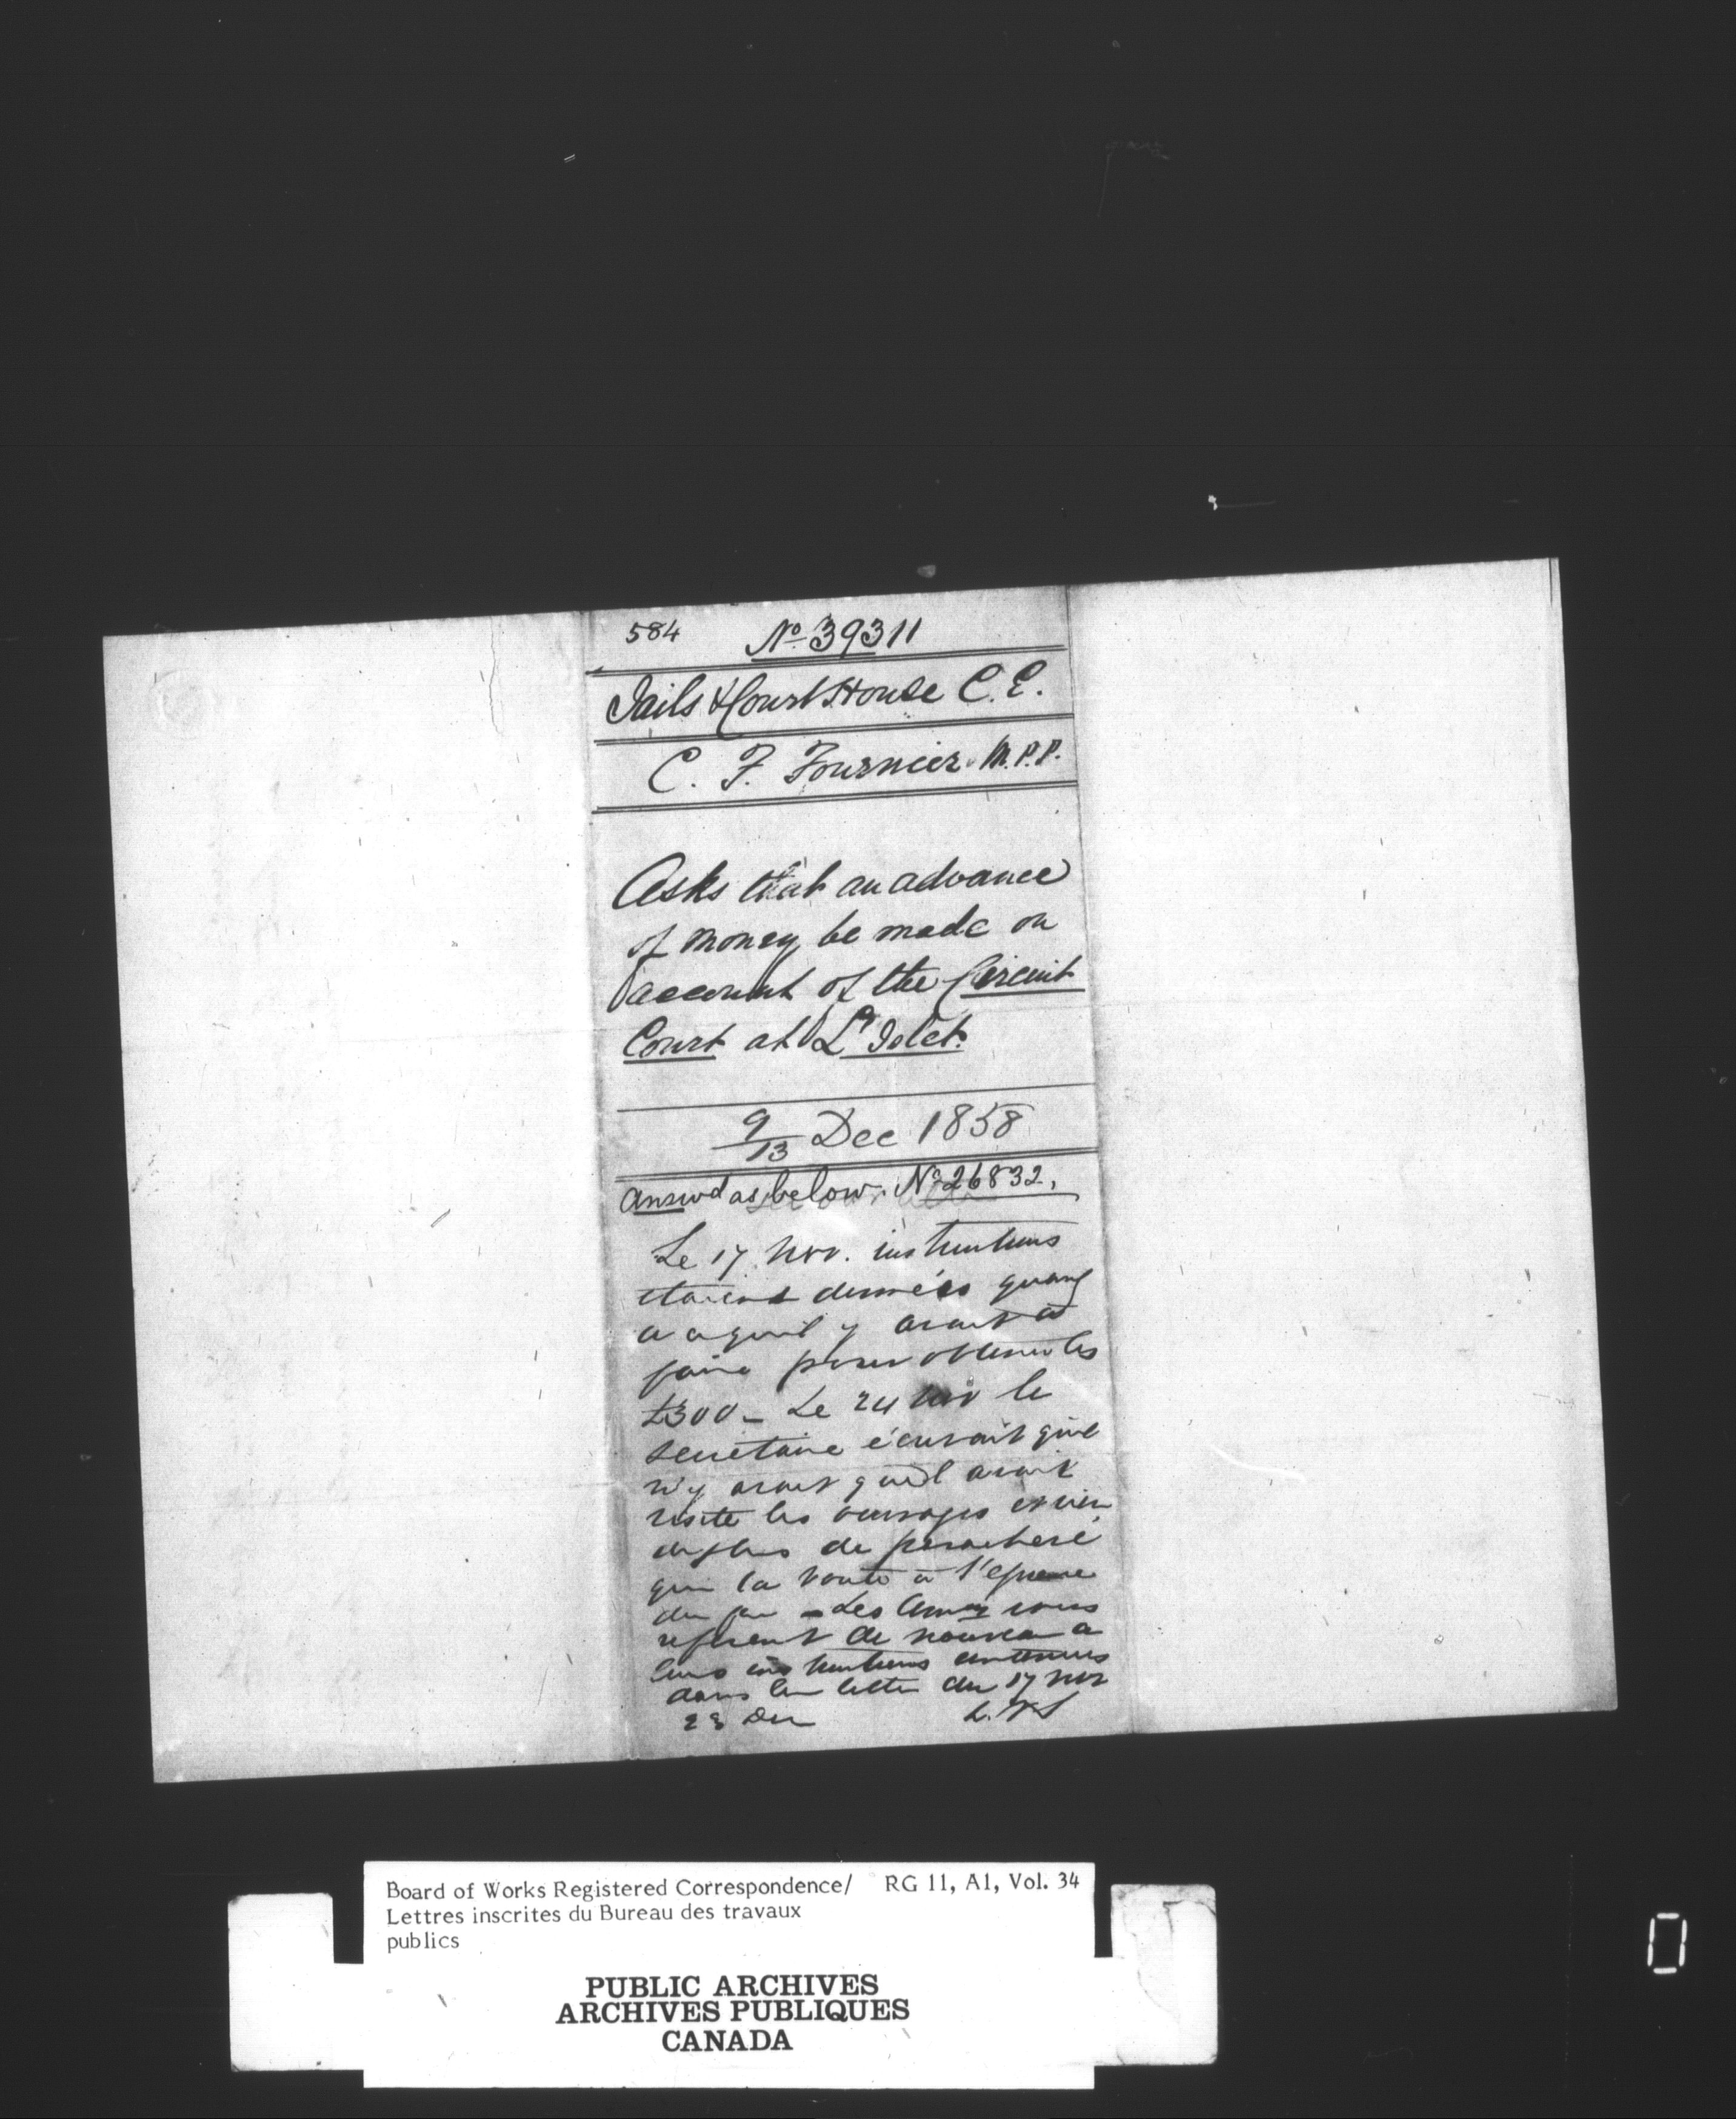 584 No 39311
Jails & Court House C. E.
C. F. Fournier M.P.P.
Asks that an advance
of money be made on
account of the Circuit
Court at L'Islet.
9/13 Dec 1858
Answd as below No 26832.
Le 17 Nov. instructions
etaient données quant
a ce qu'il y avait à
faire pour obtenir les
£300 - Le 24 Nov le
secretaire écrivait qu'il
n'y avait qu'il avait
visité les ouvrages et rien
de plus de parachevé
que la voute à l'epreuve
du feu - Les vous
referent de nouveau a
leurs instructions contenues
dans leur lettre du 17 Nov
23 Dec
Board of Works Registered Correspondence/ RG 11, A1, Vol. 34
Lettres inscrites du Bureau des travaux
publics
PUBLIC ARCHIVES
ARCHIVES PUBLIQUES
CANADA